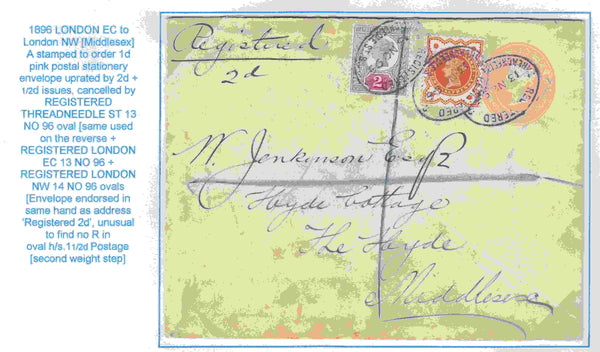 1896 LONDON EC to
London NW [Middlesex]
A stamped to order 1d
pink postal stationery
envelope uprated by 2d +
1/2d issues, cancelled by
REGISTERED
THREADNEEDLE ST 13
NO 96 oval [same used
on the reverse +
REGISTERED LONDON
EC 13 NO 96 +
REGISTERED LONDON
NW 14 NO 96 ovals
[Envelope endorsed in
same hand as address
'Registered 2d', unusual
to find no R in
oval h/s.11/2d Postage
[second weight step]
Registered
2d
W. Jenkinson Esqre
Hyde Cottage
The Hyde
Middlesex